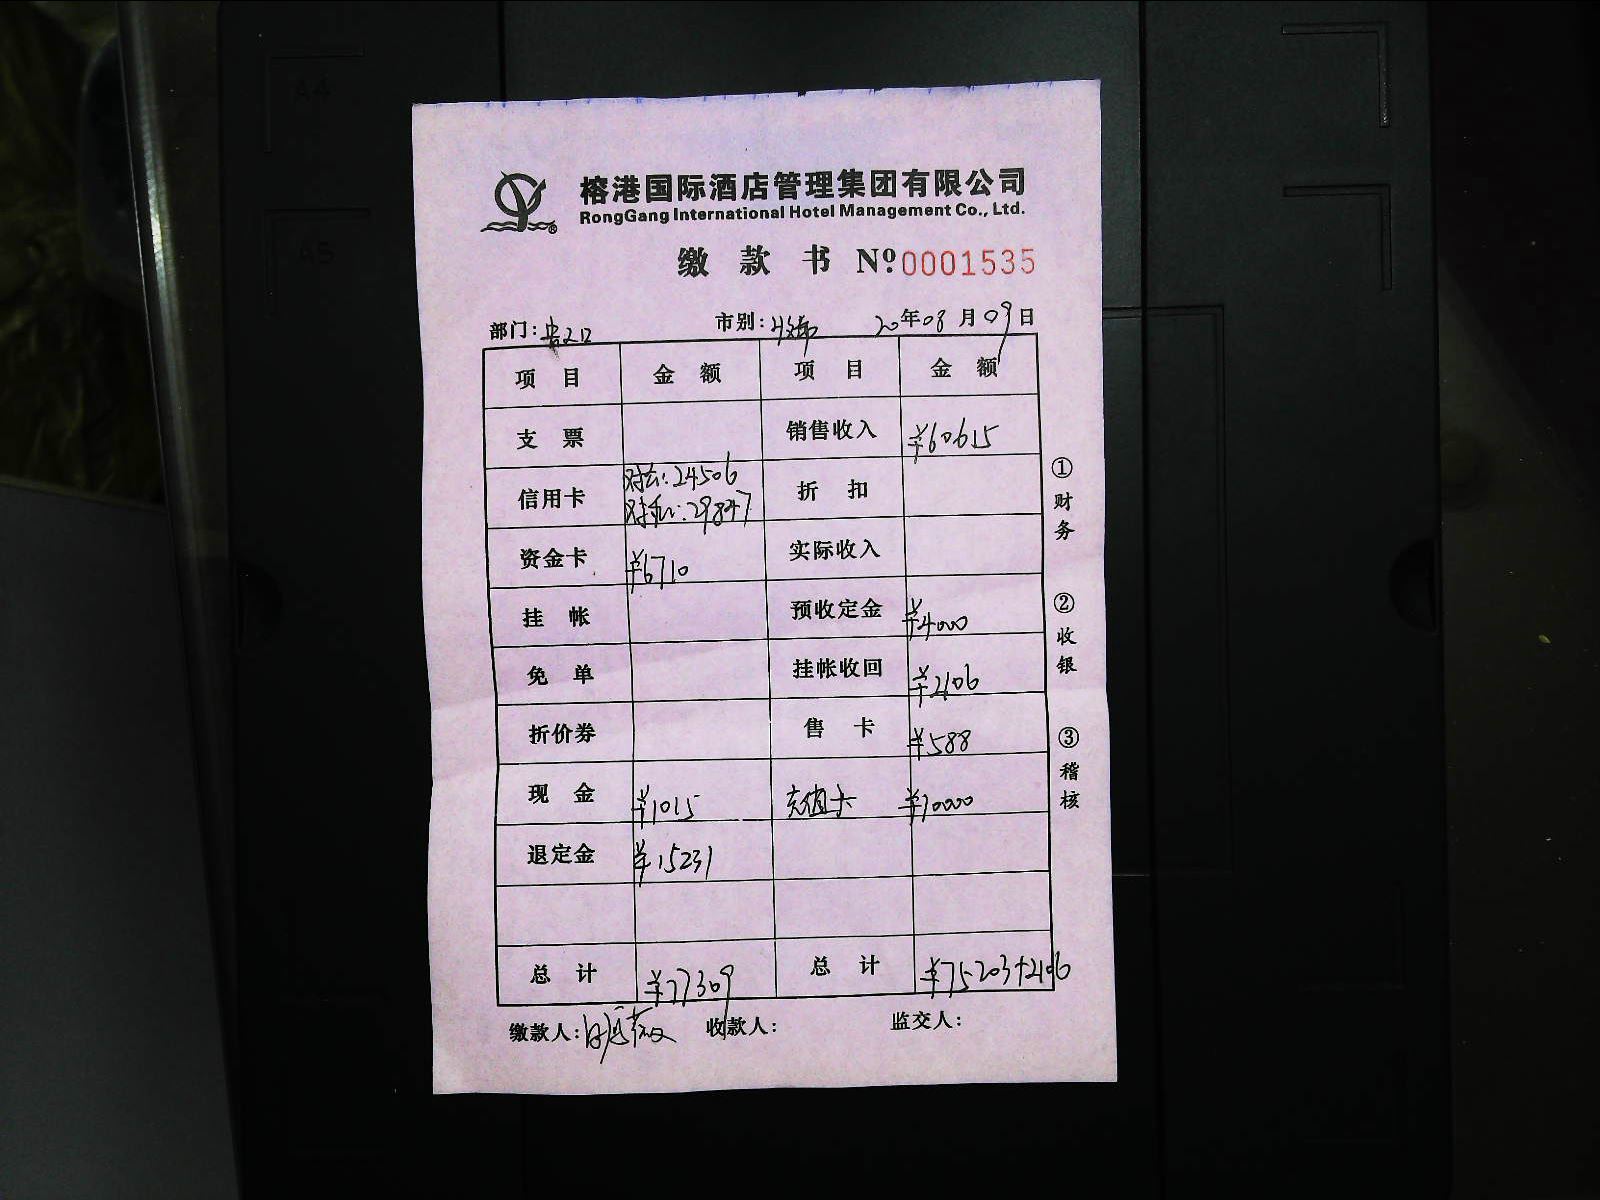 榕港国际酒店管理集团有限公司
RongGang International Hotel Management Co., Ltd.
缴款书 Nº0001535
部门: 市别: 20年08月09日
项目 金额 项目 金额
支票 销售收入 ¥60615
信用卡 对公:24506 折扣
对私:29847
资金卡 ¥6710 实际收入
挂帐 预收定金 ¥4000
免单 挂帐收回 ¥2106
折价券 售卡 ¥588
现金 ¥1015 充值卡 ¥10000
退定金 ¥15231
总计 ¥77309 总计 ¥75203+2106
缴款人: 收款人: 监交人:
①财务
②收银
③稽核
A4
A5